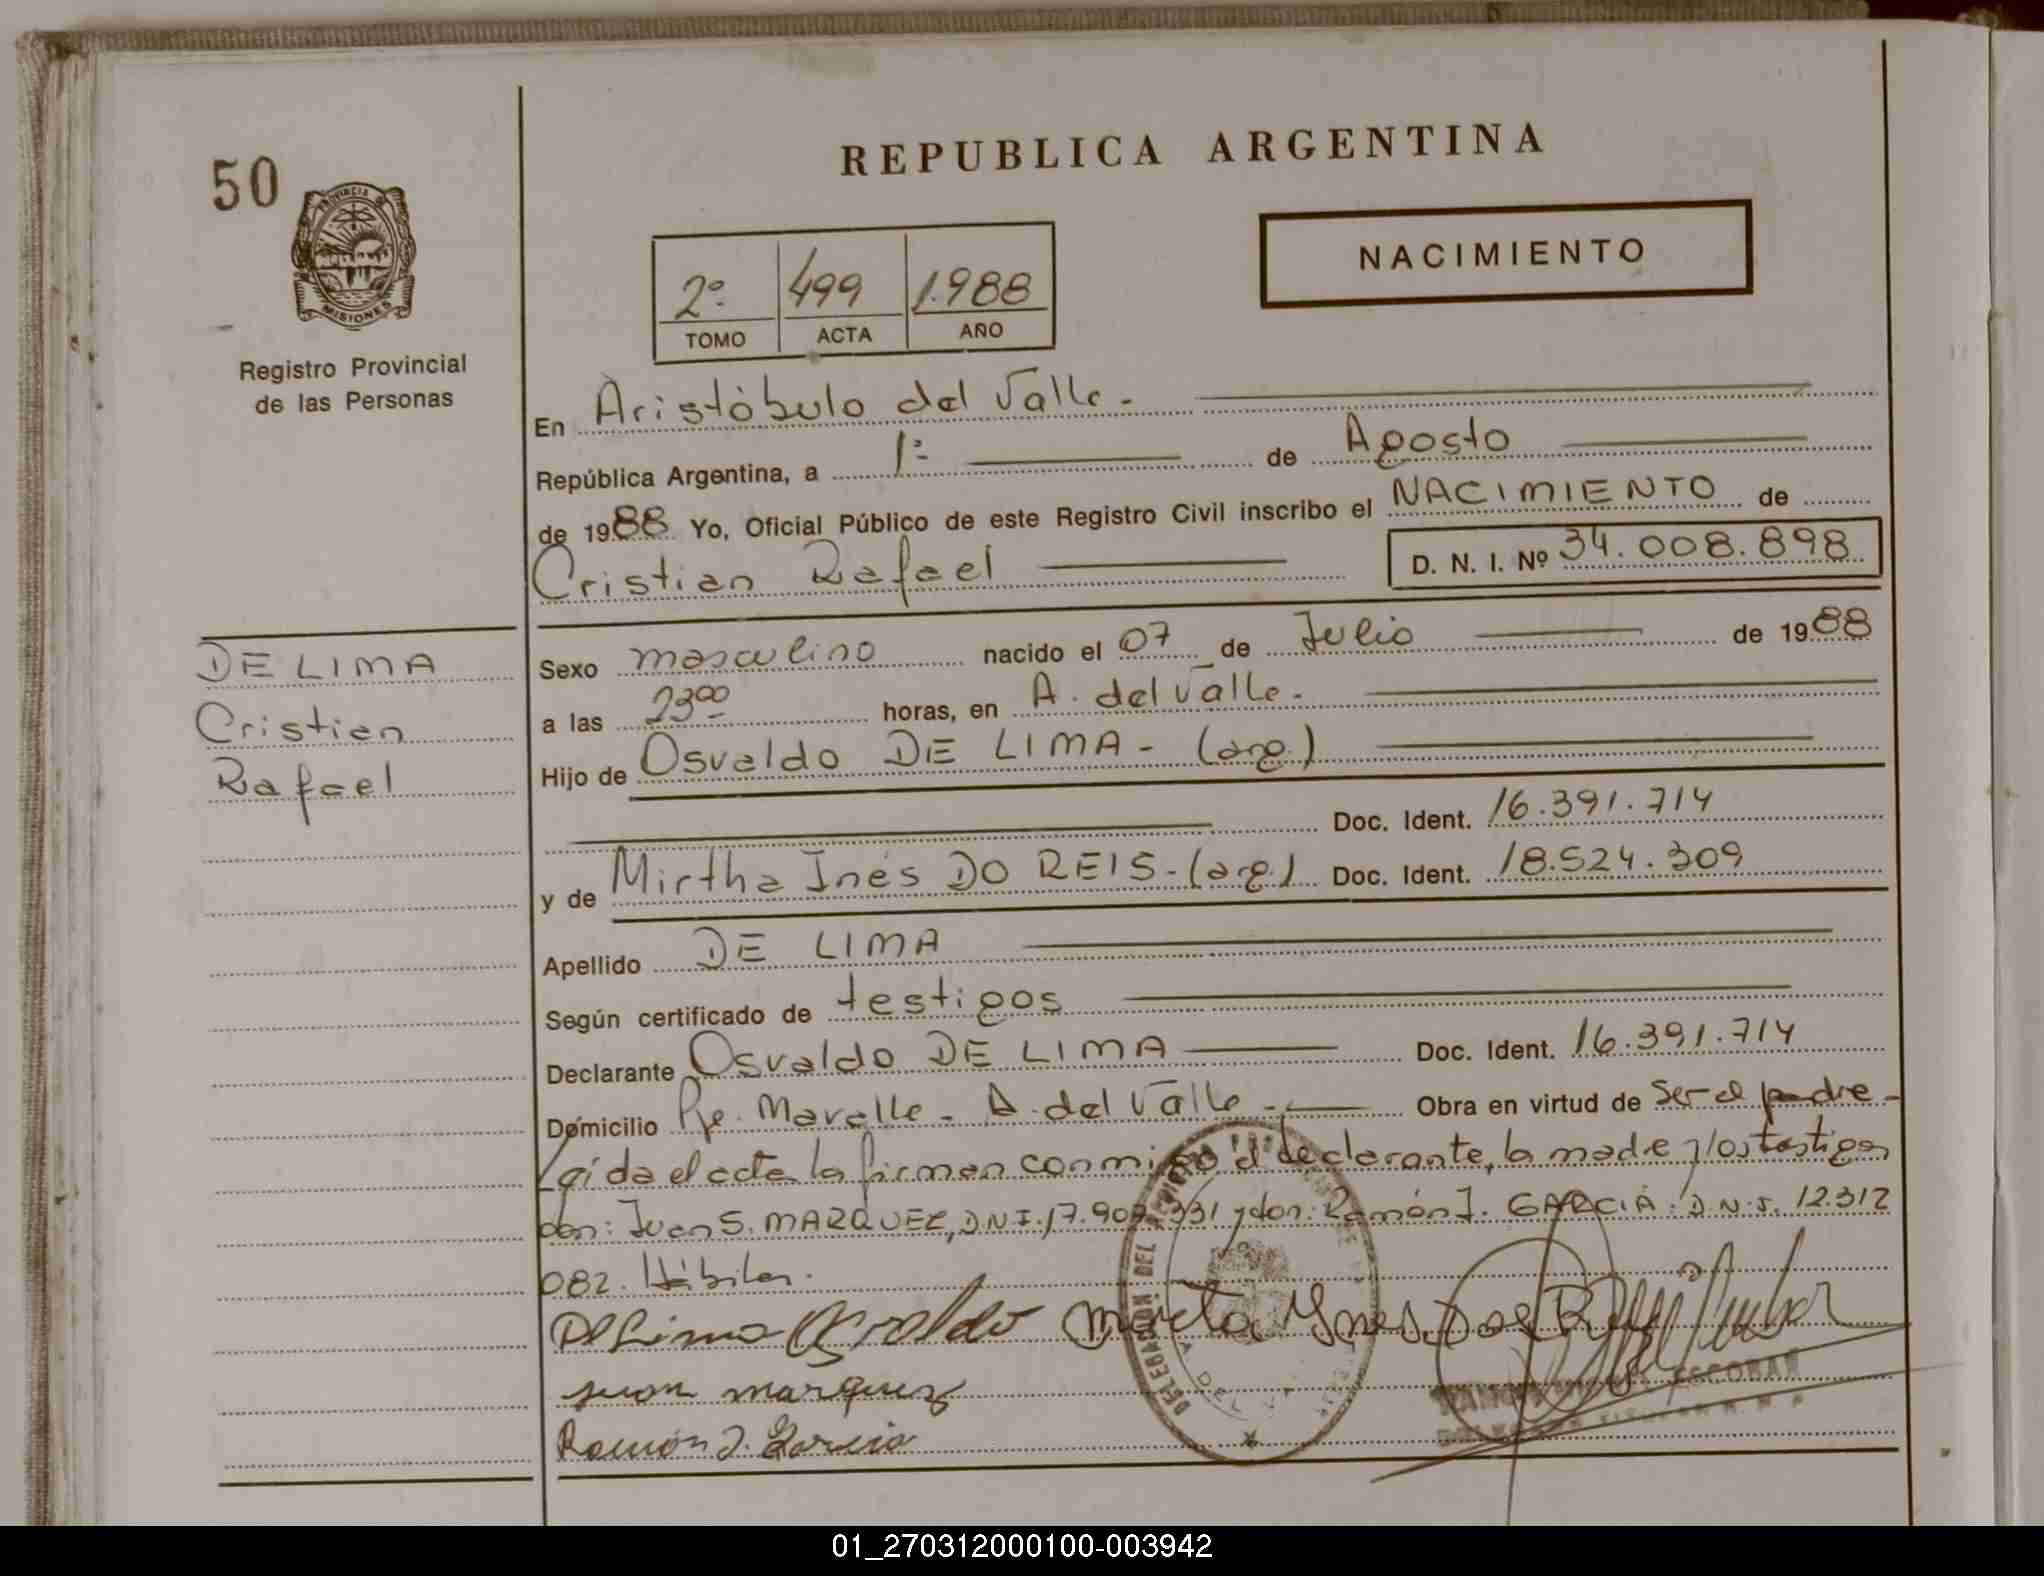 50
PROVINCIA
MISIONES
Registro Provincial
de las Personas
REPUBLICA ARGENTINA
NACIMIENTO
2º 499 1.988
TOMO ACTA AÑO
En Aristóbulo del Valle.-
República Argentina, a 1º de Agosto
de 1988 Yo, Oficial Público de este Registro Civil inscribo el NACIMIENTO de
Cristian Rafael D. N. I. Nº 34.008.898
DE LIMA
Cristian
Rafael
Sexo masculino nacido el 07 de Julio de 1988
a las 23⁰⁰ horas, en A. del Valle.-
Hijo de Osvaldo DE LIMA - (arg.)
Doc. Ident. 16.391.714
y de Mirtha Inés DO REIS - (arg.) Doc. Ident. 18.524.309
Apellido DE LIMA
Según certificado de testigos
Declarante Osvaldo DE LIMA Doc. Ident. 16.391.714
Domicilio A. del Valle - Obra en virtud de ser el padre -
Leída el acta la firman conmigo el declarante, la madre y los testigos
don: Juan S. MARQUEZ, D.N.I. 17.907.331 y don: Ramón J. GARCIA. D.N.I. 12.312
082. Hábiles.
De Lima Osvaldo
juan marquez
Ramón J. Garcia
ESCOBAR
01_270312000100-003942